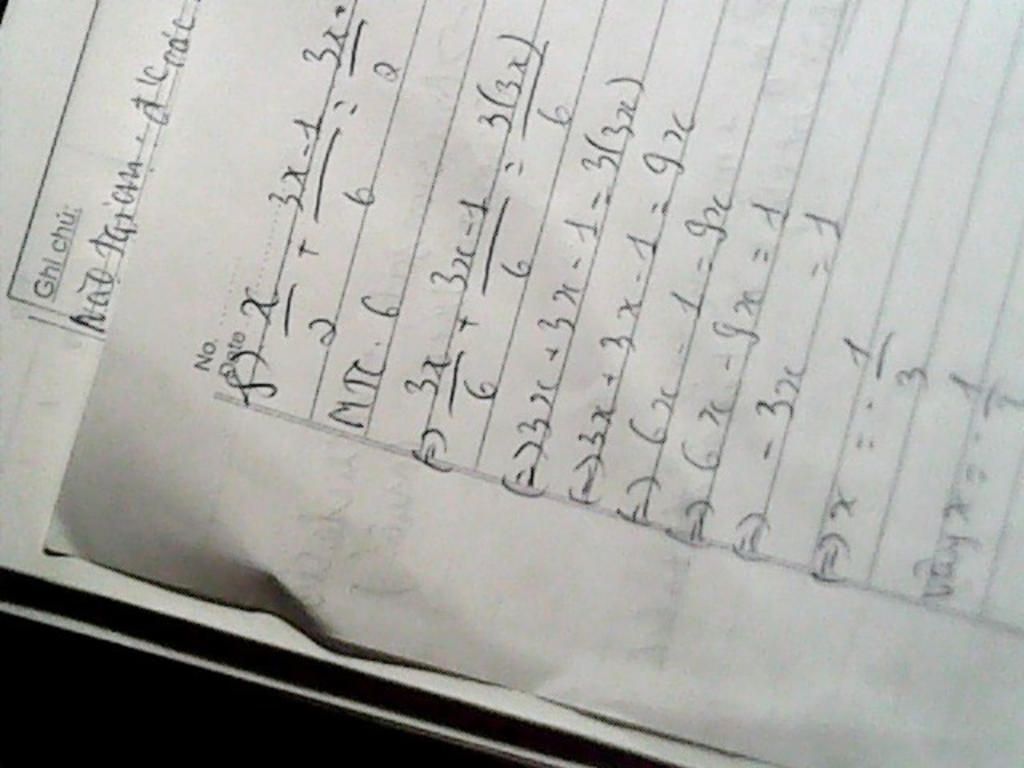 Ghi chú:
No.
Date
f) x/2 + 3x-1/6 = 3x/2
MTC: 6
(=) 3x/6 + 3x-1/6 = 3(3x)/6
(=) 3x + 3x - 1 = 3(3x)
(=) 3x + 3x - 1 = 9x
(=) 6x - 1 = 9x
(=) 6x - 9x = 1
(=) - 3x = 1
(=) x = - 1/3
Vậy x = - 1